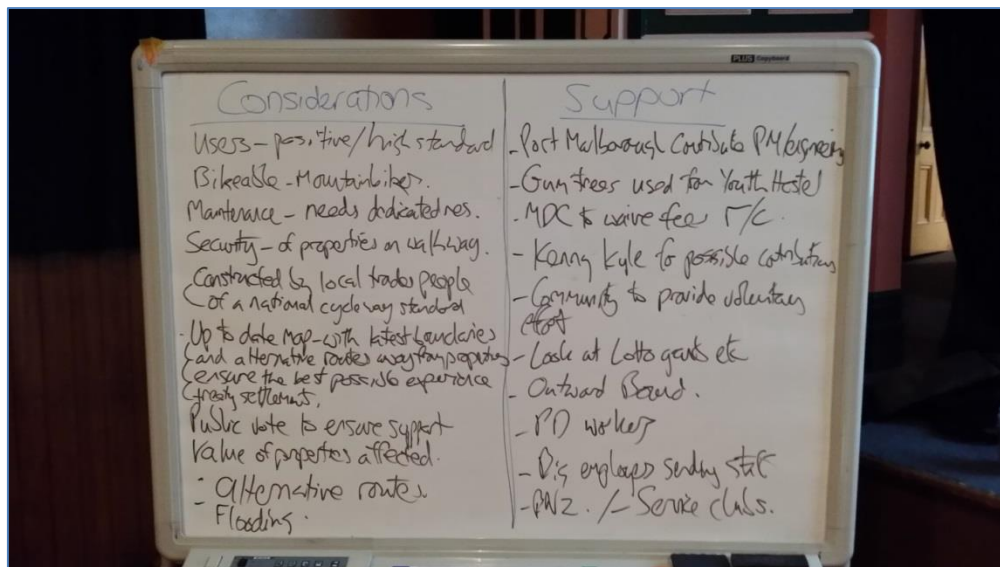 PLUS Copyboard
Considerations
Users - positive/high standard
Bikeable - Mountainbikes.
Maintenance - needs dedicated res.
Security - of properties on walkway.
Constructed by local trades people
of a national cycleway standard
- Up to date map - with latest boundaries
and alternative routes away from properties
ensure the best possible experience
treaty settlements.
Public vote to ensure support
Value of properties affected.
- alternative routes
- Flooding.
Support
- Port Marlborough contribute PM/engineering
- Gum trees used from Youth Hostel
- MDC to waive fees r/c.
- Kenny Kyle for possible contributions
- Community to provide voluntary
effort
- Look at Lotto grants etc
- Outward Bound.
- PD workers
- Big employers sending staff
- /- Service clubs.